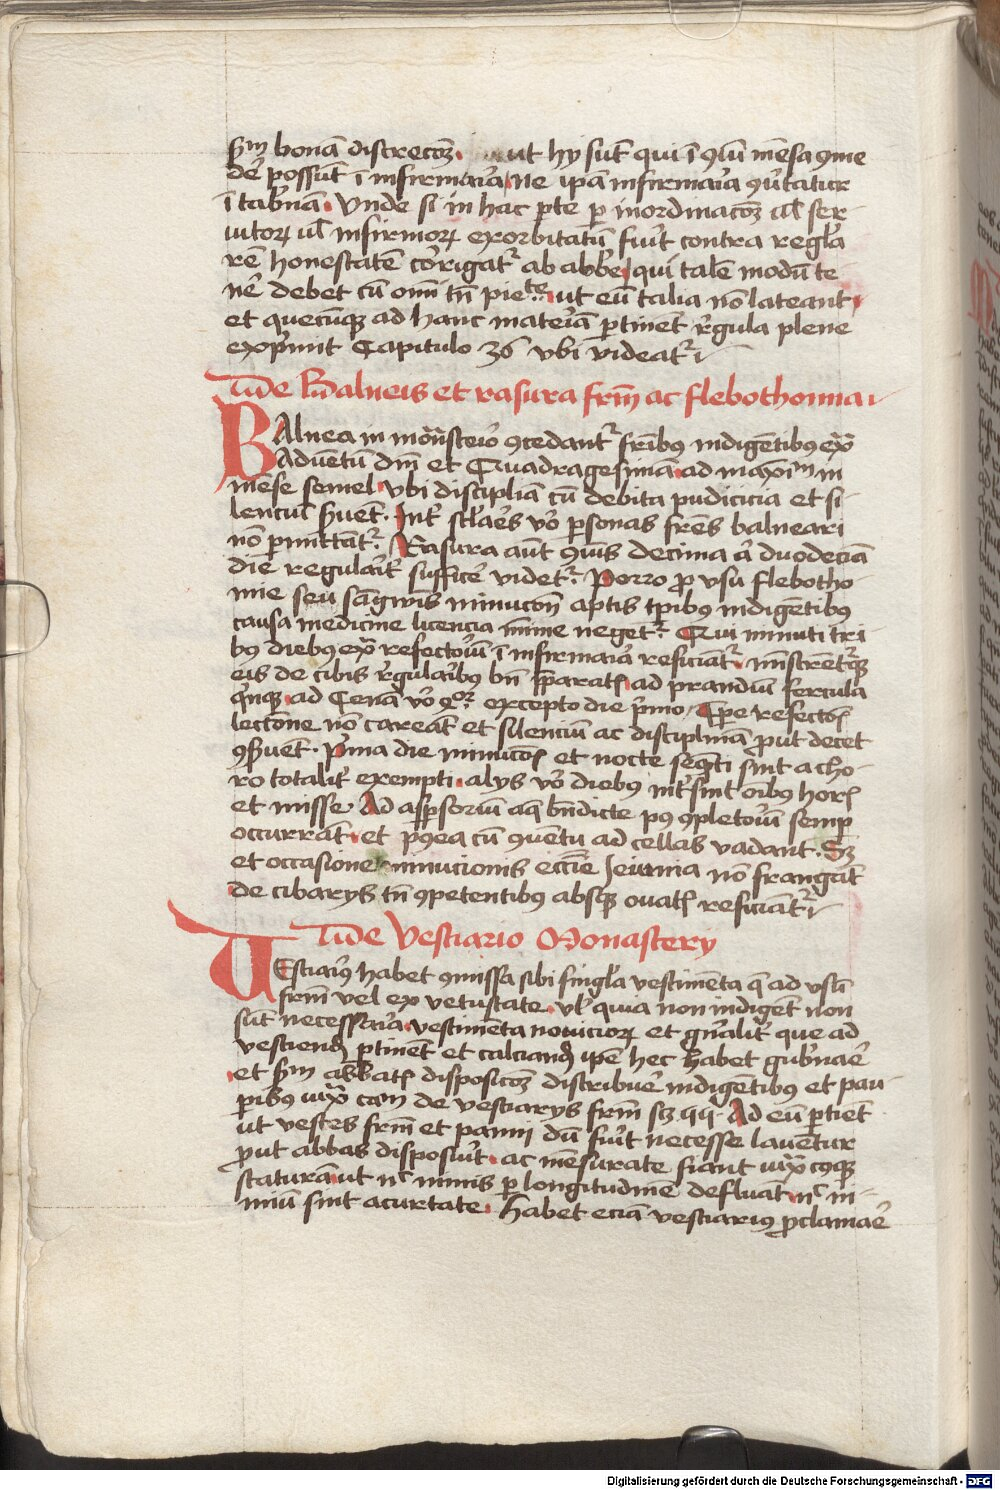 scdm bonā discrecōꝫ. ut hy sūt qui ī ꝯūi mēsa ꝯme
dē possūt ī infirmar̄ia / ne ip̄a infirmar̄ia ꝯūtatur
ī tab̄nā. Vnde si in hac p̱te p̱ inordinacōꝫ vl̄ ser
uitoꝝ vl̄ infirmoꝝ exorbitatū fūit contra regl̄a
rē honestatē cor̄igat᷑ ab abb̄e / qui talē modū te
nē debet cū om̄i tn̄ pietate ut eū talia nō lateant
et quecūqꝫ ad hanc mater̄iā p̱tinēt rḡula plene
exp̄mit Capitulo 36 vbi videat᷑
Tit̄ de Balneis et rasura frm̄ ac flebothomia
BAlnea in monast̄eio ꝯcedant᷑ fr̄ibꝰ indigētibꝰ ext̄
Aduētū dn̄i et Quadragesimā ad maximū in
mēse semel vbi disciplinā cū debita pudicicia et si
lenciū s̄uēt. Int̄ scl̄ar̄es v̄o p̱sonas fr̄es balneari
nō p̱mittāt᷑. Rasura aūt ꝯūis decima ā duodecīa
die regular̄it̄ sufficē videt᷑. Porro ꝓ vsu flebotho
mie seu sāgwīs minucōn̄ aptis tp̄ibꝰ indigētibꝰ
causa medicine licencia mīme neget᷑. Qui minuti tri
bꝰ diebꝰ ext̄ refector̄iū ī infirmar̄ia reficiāt᷑ mīstrēt᷑qꝫ
eis de cibis rḡular̄ibꝰ bn̄ p̄parat̄ ad prandiū fercula
q̄nqꝫ ad Cenā v̄o qͦr excepto die p̄mo / Tp̄e refectōis
lectōne nō careāt et silenciū ac disciplinā ꝓut decet
ꝯs̄uēt. P̄ma die minucōis et nocte seq̄nti sīnt a cho
ro totalit̄ exempti. alys v̄o diebꝰ int̄sint oībꝰ hor̄
et misse. Ad asp̱soriū aq̄ bn̄dicte pꝰ ꝯpletor̄iū semp̱
occurrāt. et pꝰea cū ꝯuētu ad cellas vadant. Sꝫ
et occasione minucionis eccīe Jeiunia nō frangāt
de cibarys tn̄ ꝯpetentibꝰ absqꝫ ouat̄ reficiāt᷑
Tit̄ de Vestiario Monastery
VEstiar̄iꝰ habet ꝯmissa sibi singl̄a vestimēta q̄ ad vsū
frm̄ vel ex vetustate. vl̄ quia non indigēt non
sūt necessar̄ia. vestimēta nouicioꝝ et gn̄alit̄ que ad
vestiend̄ p̱tinēt et calciand̄ ip̄e hec habet gub̄nar̄e
et scdm abbat̄ disposicōꝫ distribuē indigētibꝰ et pau
p̱ibꝰ iuxͣ cam̄ de vestiarys frm̄ sꝫ qq̄. Ad eū p̱tīet
ut vestes frm̄ et panni dū fūit necesse lauētur
ꝓut abbas disposūit. ac mēsurate fiant iuxͣ cuiꝰqꝫ
staturā ut nᶜ nimis p̱ longitudinē defluāt nᶜ ni
miū sint acurtate. Habet eciā vestiariꝰ ꝓclamar̄e
Digitalisierung gefördert durch die Deutsche Forschungsgemeinschaft - DFG